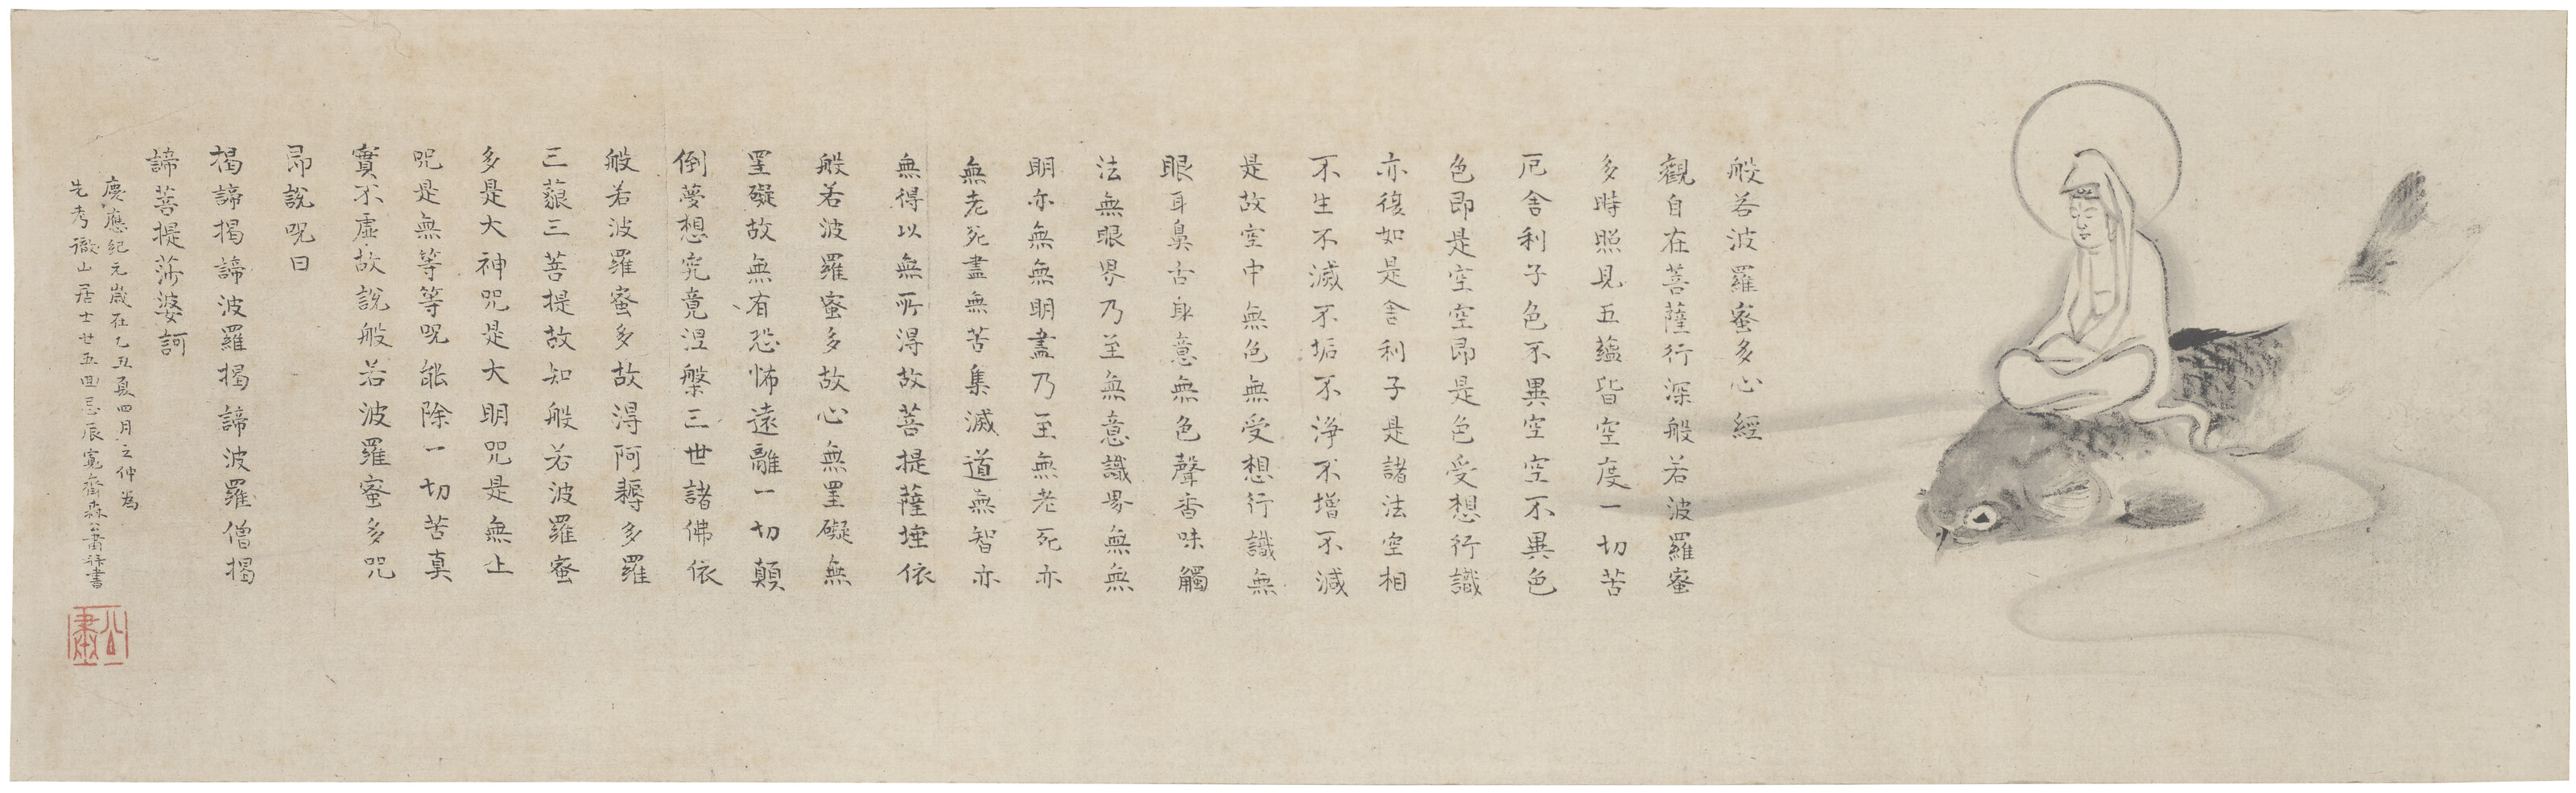 般若波羅蜜多心經
觀自在菩薩行深般若波羅蜜
多時照見五蘊皆空度一切苦
厄舍利子色不異空空不異色
色即是空空即是色受想行識
亦復如是舍利子是諸法空相
不生不滅不垢不淨不增不減
是故空中無色無受想行識無
眼耳鼻舌身意無色聲香味觸
法無眼界乃至無意識界無無
明亦無無明盡乃至無老死亦
無老死盡無苦集滅道無智亦
無得以無所得故菩提薩埵依
般若波羅蜜多故心無罣礙無
罣礙故無有恐怖遠離一切顛
倒夢想究竟涅槃三世諸佛依
般若波羅蜜多故得阿耨多羅
三藐三菩提故知般若波羅蜜
多是大神咒是大明咒是無上
咒是無等等咒能除一切苦真
實不虛故說般若波羅蜜多咒
即說咒曰
揭諦揭諦波羅揭諦波羅僧揭
諦菩提薩婆訶
慶應紀元歲在乙丑夏四月之仲為
先考徹山居士廿五回忌辰寬齋森公肅拜書
公肅